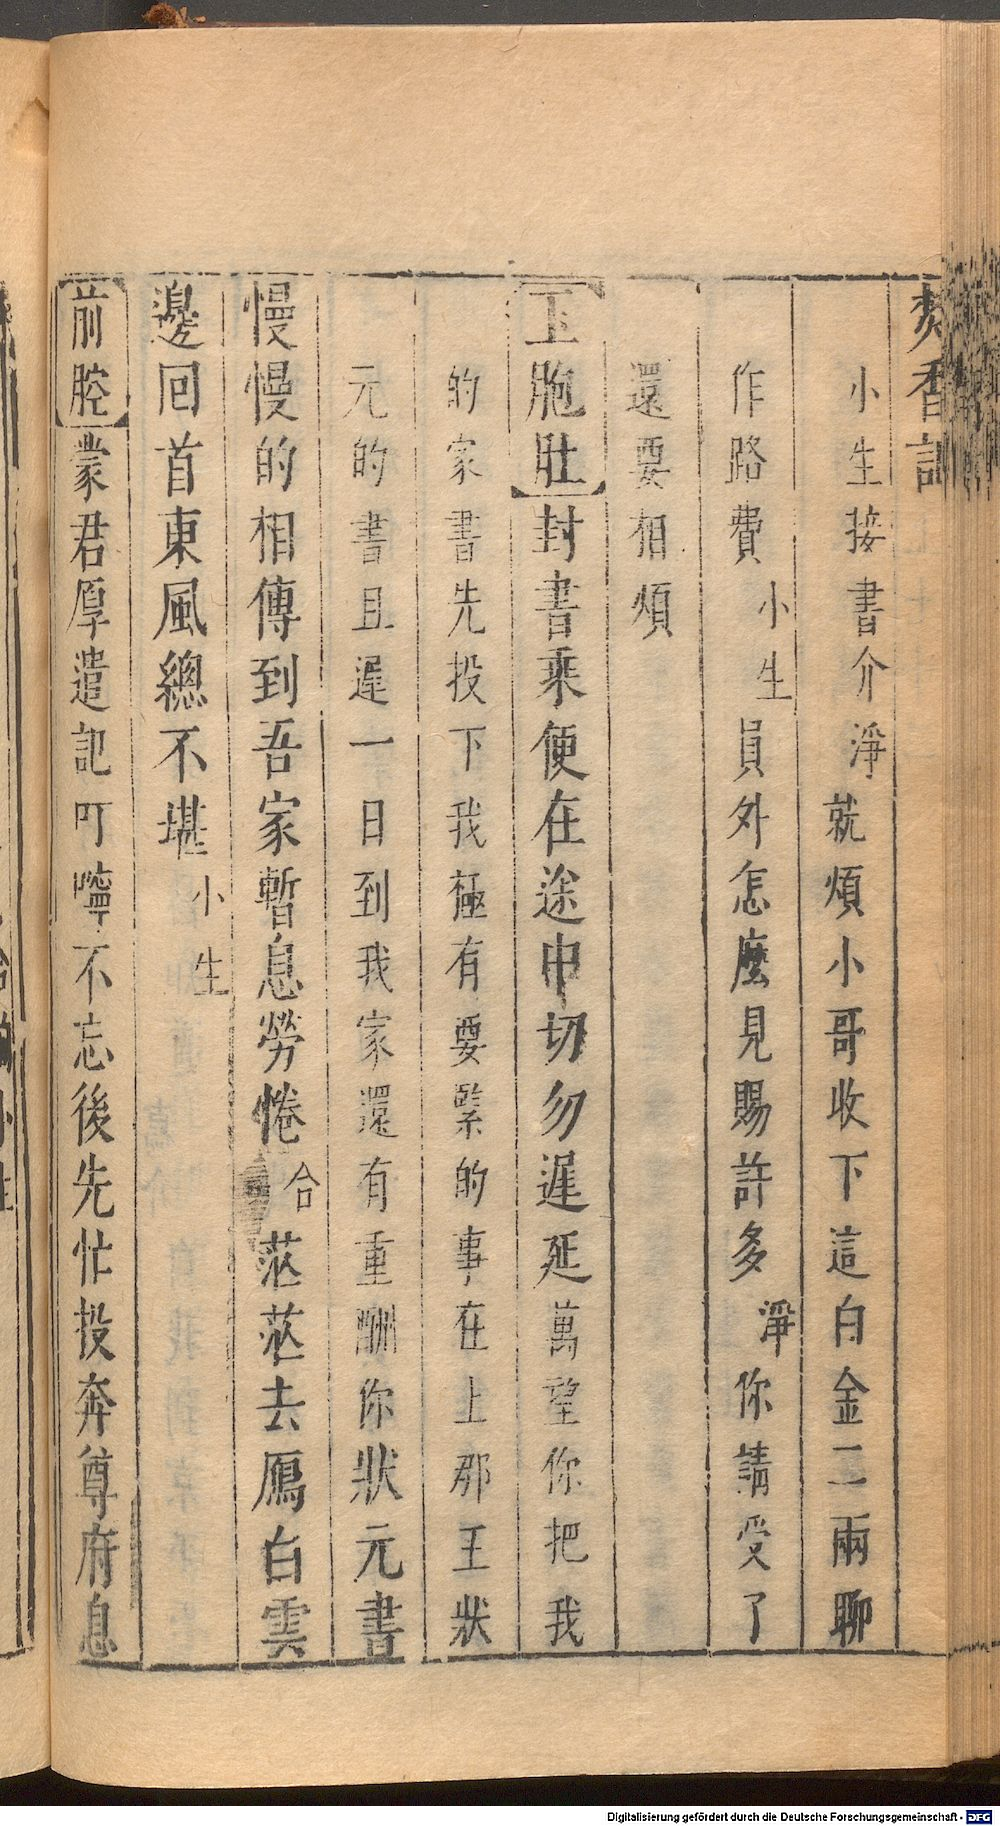 焚香記
小生接書介淨就煩小哥收下這白金二兩聊
作路費小生員外怎麼見賜許多淨你請受了
還要相煩
玉胞肚封書乘便在途中切勿遲延萬望你把我
的家書先投下我極有要緊的事在上那王狀
元的書且遲一日到我家還有重酬你狀元書
慢慢的相傳到吾家暫息勞惓合茫茫去鴈白雲
邊回首東風總不堪小生
前腔蒙君厚遣記叮嚀不忘後先忙投奔尊府息
Digitalisierung gefördert durch die Deutsche Forschungsgemeinschaft - DFG